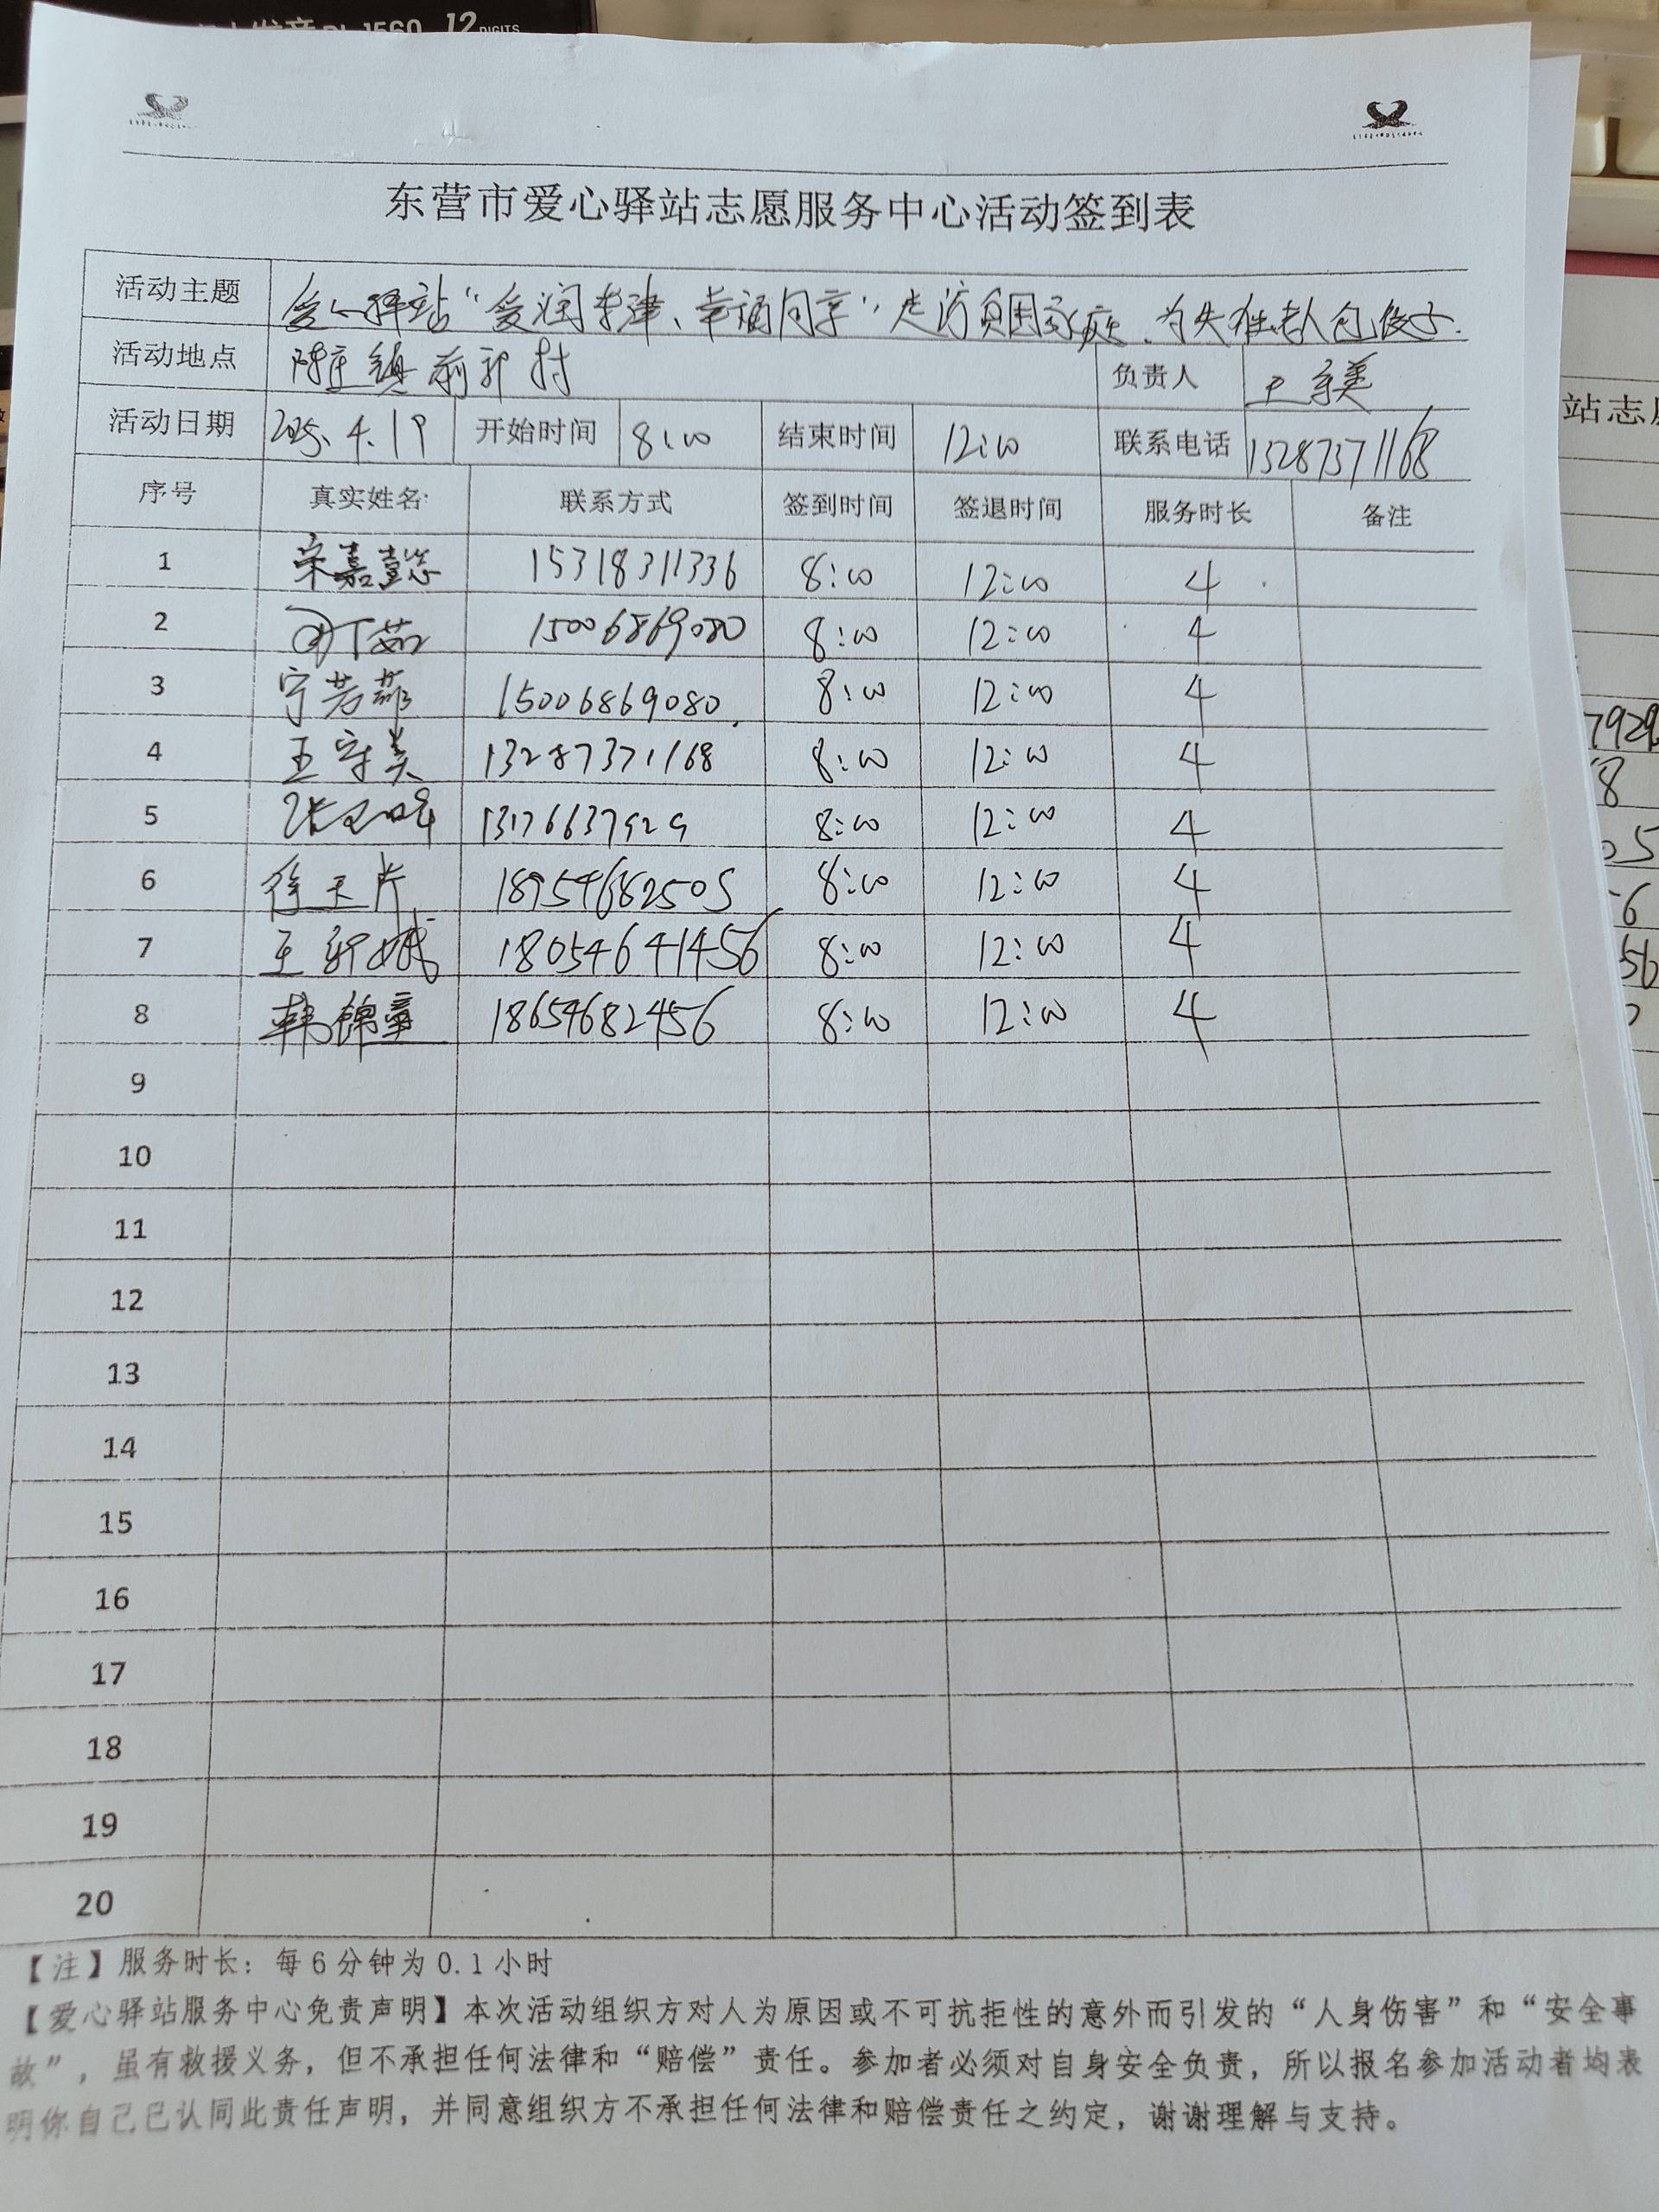 12 DIGITS
东营市爱心驿站志愿服务中心活动签到表
活动主题 爱心驿站“爱润李津、幸福同享”走访贫困家庭、为失独老人包饺子.
活动地点 陈庄镇前郭村 负责人 王守美
活动日期 2025.4.19 开始时间 8:00 结束时间 12:00 联系电话 13287371168
序号 真实姓名 联系方式 签到时间 签退时间 服务时长 备注
1 宋嘉懿 15318311336 8:00 12:00 4
2 15006869080 8:00 12:00 4
3 宁芳菲 15006869080 8:00 12:00 4
4 王守美 13287371168 8:00 12:00 4
5 13176637929 8:00 12:00 4
6 徐玉片 18954682505 8:00 12:00 4
7 王新娥 18054641456 8:00 12:00 4
8 韩锦章 18654682456 8:00 12:00 4
9
10
11
12
13
14
15
16
17
18
19
20
【注】服务时长：每6分钟为0.1小时
【爱心驿站服务中心免责声明】本次活动组织方对人为原因或不可抗拒性的意外而引发的“人身伤害”和“安全事
故”，虽有救援义务，但不承担任何法律和“赔偿”责任。参加者必须对自身安全负责，所以报名参加活动者均表
明你自己已认同此责任声明，并同意组织方不承担任何法律和赔偿责任之约定，谢谢理解与支持。